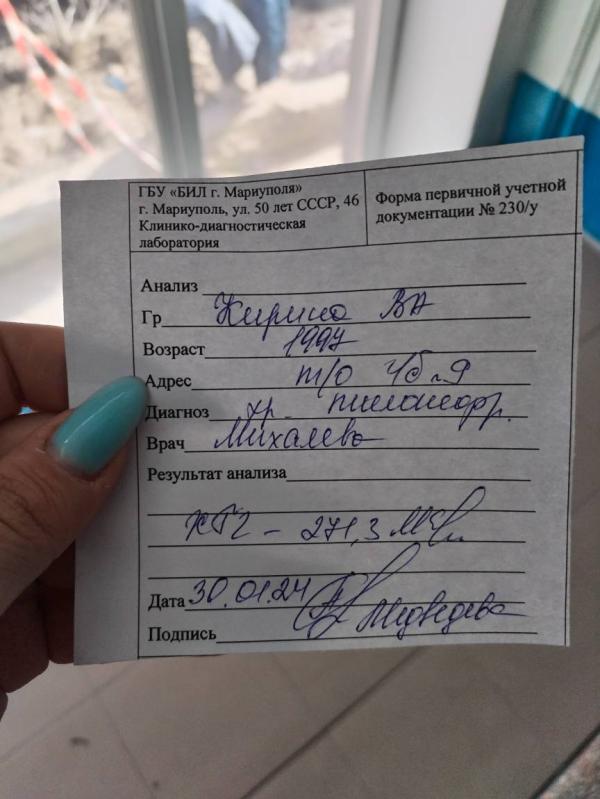 ГБУ «БИЛ г. Мариуполя»
г. Мариуполь, ул. 50 лет СССР, 46
Клинико-диагностическая
лаборатория
Форма первичной учетной
документации № 230/у
Анализ
Гр Кирина ВА
Возраст 1997
Адрес т/о
Диагноз хр. пиелонефр.
Врач Михалева
Результат анализа
ХГЧ - 271,3
Дата 30.01.24
Подпись Медведева